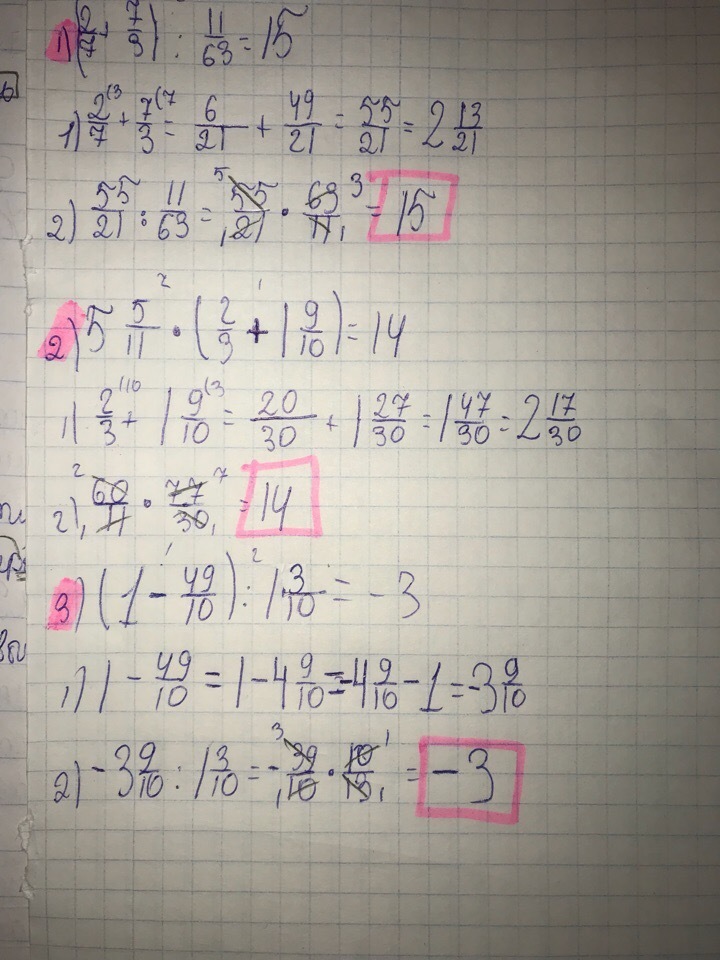 1) (2/7 + 7/3) : 11/63 = 15
1) 2/7 (3 + 7/3 (7 = 6/21 + 49/21 = 55/21 = 2 13/21
2) 55/21 : 11/63 = 5 55/21 1 · 63/11 3 1 = 15
2) 5 5/11 ·² (2/3 +¹ 1 9/10) = 14
1) 2/3 (10 + 1 9/10 (3 = 20/30 + 1 27/30 = 1 47/30 = 2 17/30
2) 2 60/11 1 · 77/30 7 1 = 14
3) (1 -¹ 49/10) :² 1 3/10 = -3
1) 1 - 49/10 = 1 - 4 9/10 = -4 9/10 - 1 = -3 9/10
2) -3 9/10 : 1 3/10 = - 3 39/10 1 · 10/13 1 1 = -3